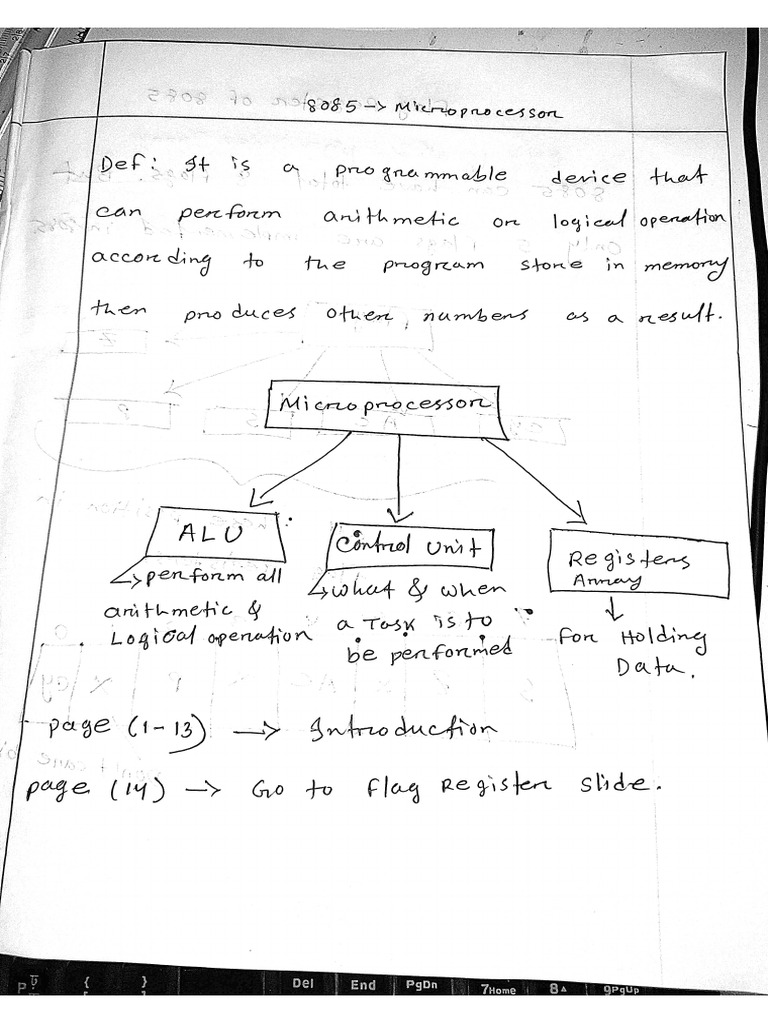 8085 → Microprocessor
Def: It is a programmable device that
can perform arithmetic or logical operation
according to the program store in memory
then produces other numbers as a result.
Microprocessor
ALU
↳ perform all
arithmetic &
Logical operation
Control Unit
↳ what & when
a Task is to
be performed
Registers
Array
↓
For Holding
Data.
page (1-13) → Introduction
page (14) → Go to Flag Register slide.
P
{
}
Del
End
PgDn
7Home
8▲
9PgUp